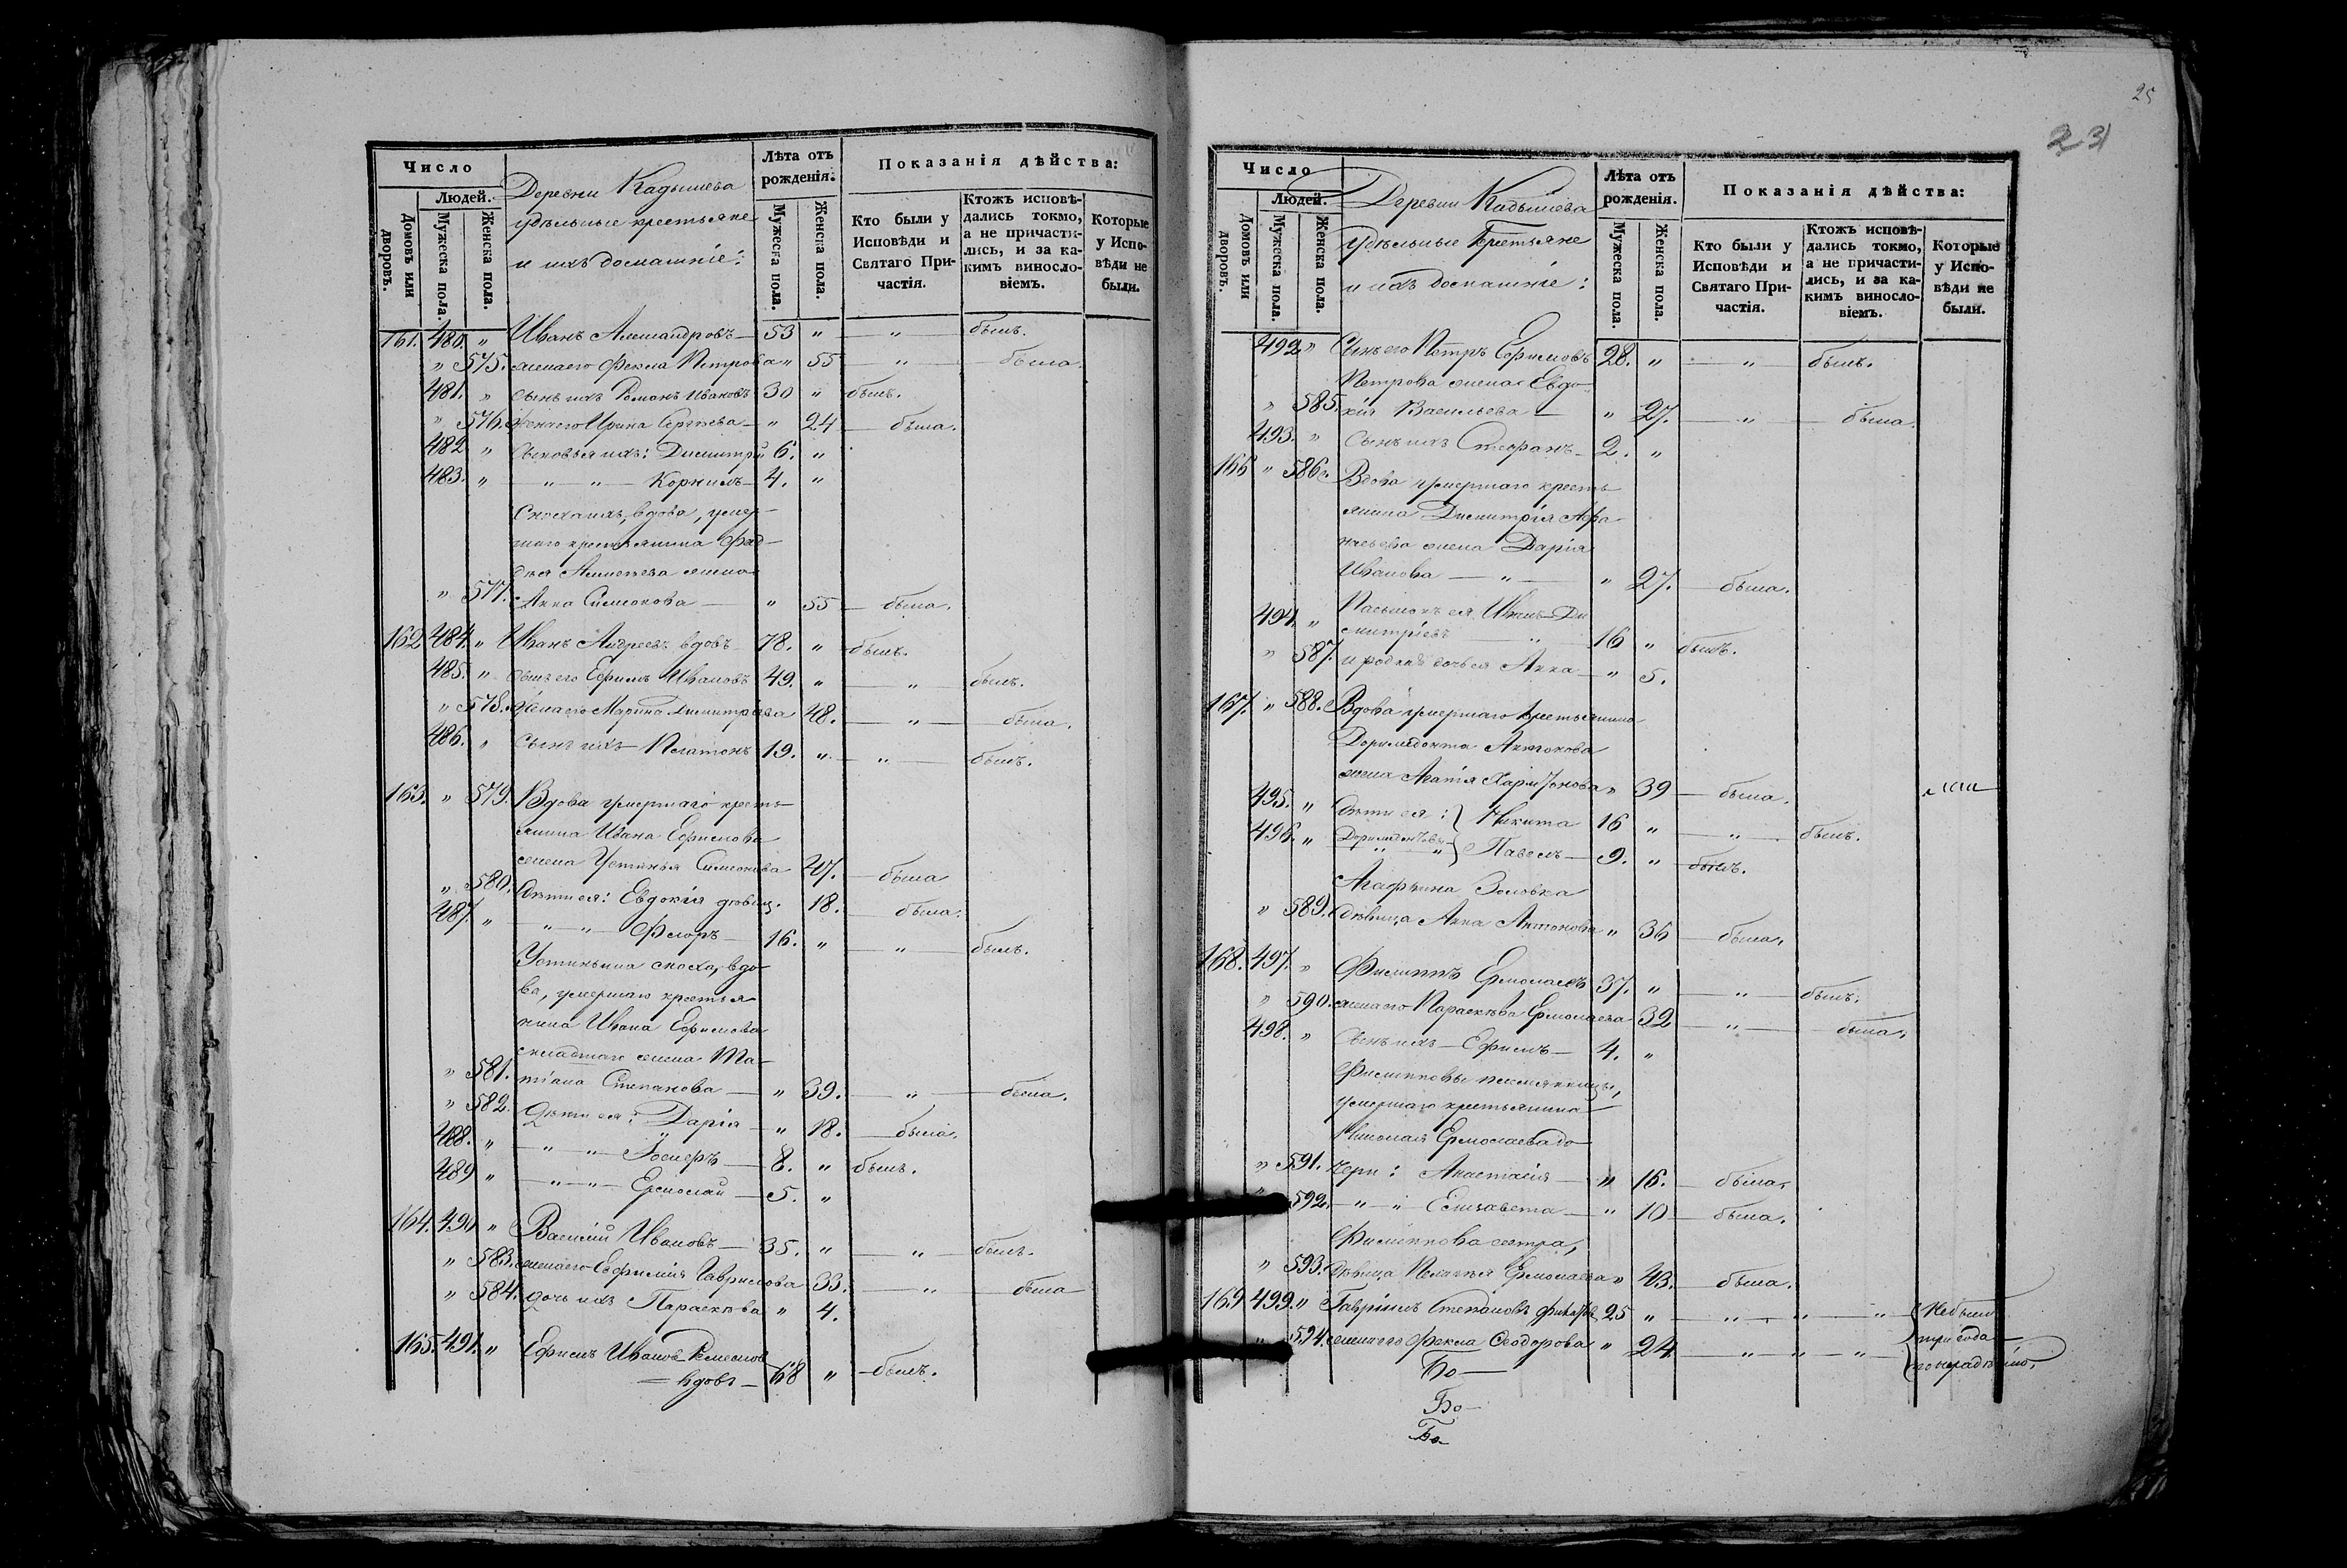 Число
Людей.
Домовъ или дворовъ.
Мужеска пола.
Женска пола.
Деревни Кадышева
удѣльные крестьяне
и ихъ домашніе:
Лѣта отъ рожденія.
Мужеска пола.
Женска пола.
Показанія дѣйства:
Кто были у Исповѣди и Святаго Причастія.
Ктожъ исповѣдались токмо, а не причастились, и за какимъ винословіемъ.
Которые у Исповѣди не были.
161. 480. " Иванъ 53 " " былъ.
" 575. жена его Фекла Петрова " 55 " была.
481. " сынъ ихъ Романъ Ивановъ 30 " былъ.
" 576. Жена его Ирина Сергѣева " 24 была.
482 " Сыновья ихъ: Димитрій 6. "
483. " " " Корнилъ 4. "
Сноха ихъ, вдова, умер-
шаго крестьянина Фад-
дея жена
" 577. Анна Симеонова " 55 была.
162 484. " Иванъ Андреевъ вдовъ 78. " былъ.
485. " сынъ его Ефимъ Ивановъ 49. " " былъ.
" 578. Жена его Марина Димитріева 48. " была.
486. " Сынъ ихъ Платонъ 19. " " былъ.
163. " 579. Вдова умершаго кресть-
янина Ивана Ефимова
жена Устинья Симеонова 47. была
" 580. Дѣти ея: Евдокія дѣвиц. 18. была.
487. " " " Флоръ 16. " " былъ.
Устиньина сноха, вдо-
ва, умершаго крестья-
нина Ивана Ефимова
младшаго жена Та-
" 581. тіана Степанова " 39. " была.
" 582. Дѣти ея: Дарія " 18. была.
488. " " " Іосифъ 8. " былъ.
489 " " " Ермолай 5. "
164. 490 " Василій Ивановъ 35. " " былъ.
" 583. жена его Евфимія Гаврилова 33. " была
" 584. дочь ихъ Параскѣва " 4.
165. 491. " Ефимъ Ивановъ
вдовъ 68 " былъ.
25
23
Число
Людей.
Домовъ или дворовъ.
Мужеска пола.
Женска пола.
Деревни Кадышева
Удѣльные Крестьяне
и ихъ домашніе:
Лѣта отъ рожденія.
Мужеска пола.
Женска пола.
Показанія дѣйства:
Кто были у Исповѣди и Святаго Причастія.
Ктожъ исповѣдались токмо, а не причастились, и за какимъ винословіемъ.
Которые у Исповѣди не были.
492 " Сынъ его Петръ Ефимовъ 28. " " былъ.
Петрова жена Евдо-
" 585. кія Васильева " 27. " была.
493. " Сынъ ихъ Стефанъ 2. "
166 " 586. Вдова умершаго кресть-
янина Димитрія Афа-
насьева жена Дарія
Иванова " " 27. была.
494. " Пасынокъ ея Иванъ Ди-
митріевъ " 16 " былъ.
" 587. и родная дочь ея Анна " 5.
167. " 588. Вдова умершаго крестьянина
Доримедонта Антонова
жена Агафія Харитонова " 39 была.
495. " Дѣти ея: Никита 16 " " былъ.
496. " Доримедонтовы Павелъ 9. " былъ.
" " Агафьина Золовка
" 589. дѣвица Анна Антонова " 36 была.
168. 497. " Филиппъ Ермолаевъ 37. " " былъ.
" 590. жена его Параскѣва Ермолаева 32 " была.
498. " Сынъ ихъ Ефимъ 4. "
Филипповы племянницы,
умершаго крестьянина
Николая Ермолаева до-
" 591. чери: Анастасія " 16. была.
" 592. " " Елизавета " 10 была.
Филиппова сестра,
" 593. дѣвица Пелагея Ермолаева " 43. была.
169 499. " Гавріилъ Степановъ 25 " " " " Небыли
" 594. жена его Фекла Ѳеодорова " 24 " " " три года
по нерадѣнію.
Бо-
Бо-
Бо-